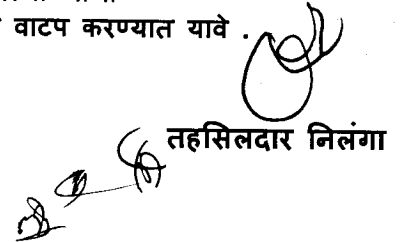 वाटप करण्यात यावे .
तहसिलदार निलंगा